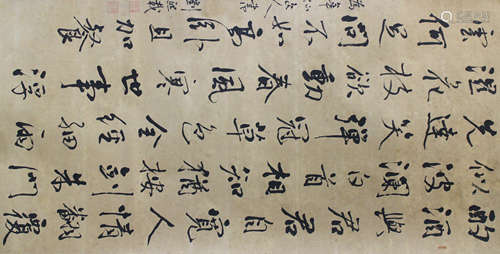 酌酒與君君自寬人情翻覆
似波瀾白首相知猶按劍朱門
先達笑彈冠草色全經細雨
濕花枝欲動春風寒世事浮
雲何足問不如高臥且加餐